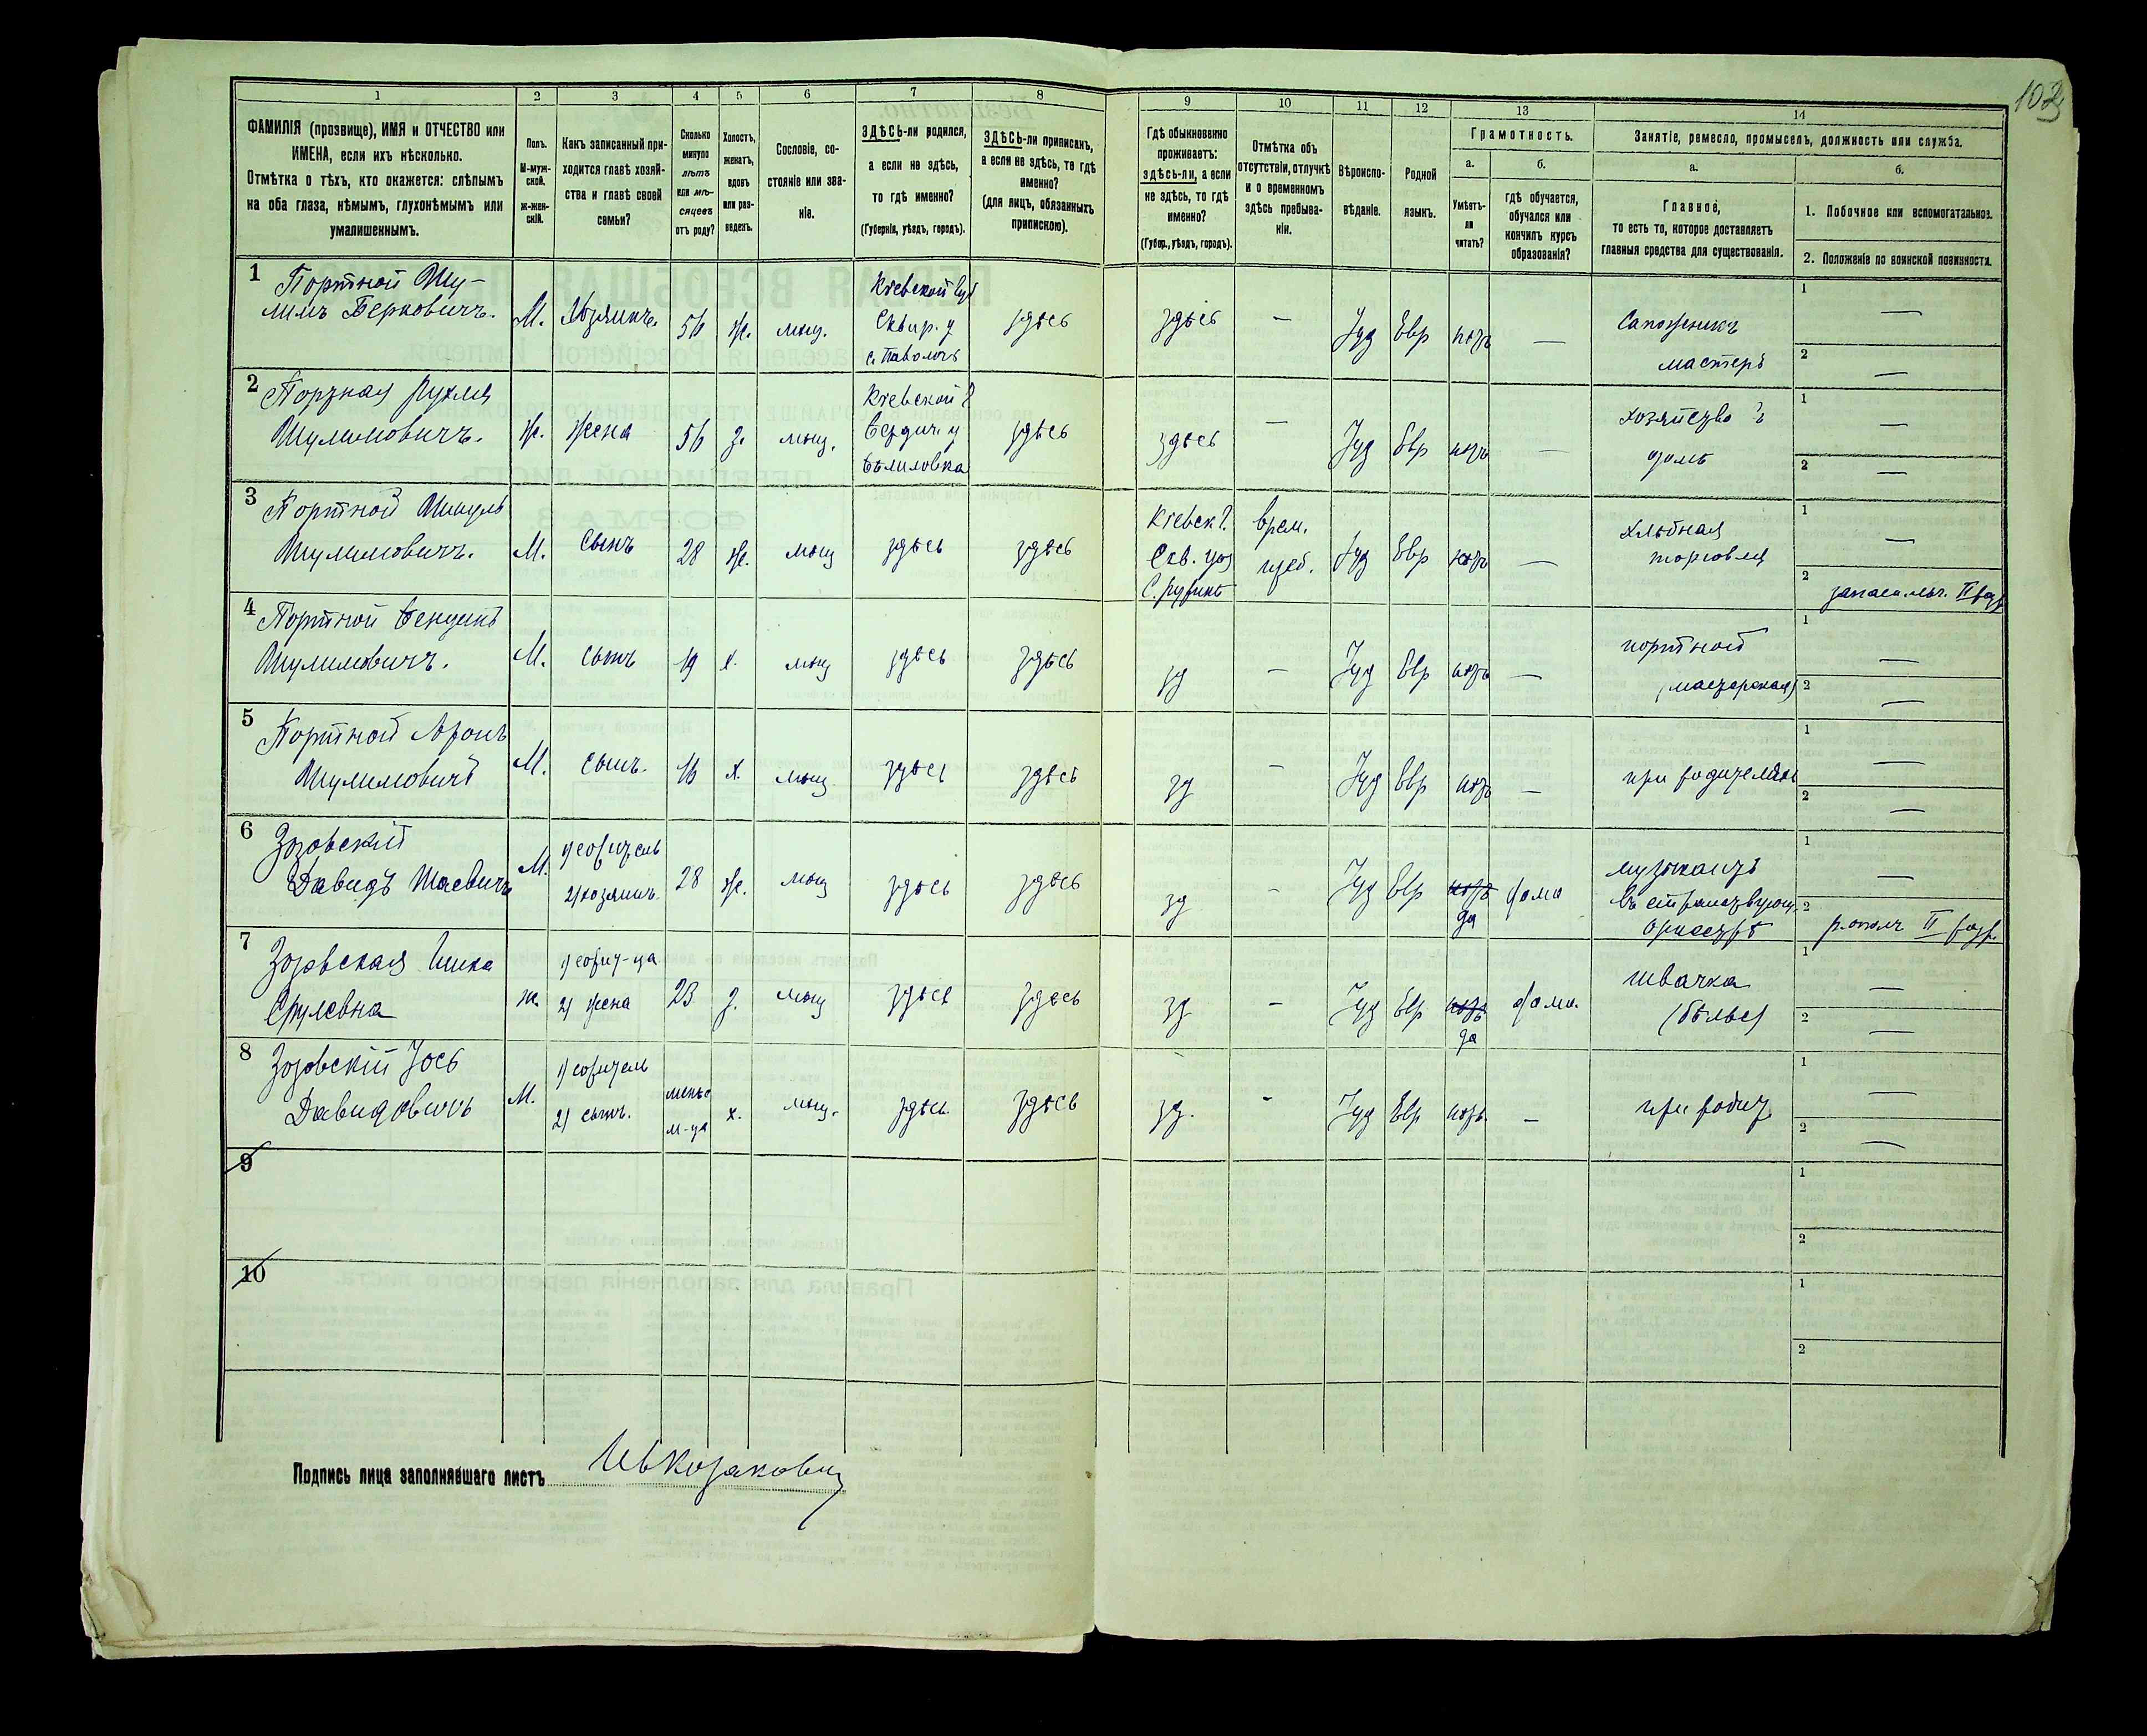 103
1
2
3
4
5
6
7
8
9
10
11
12
13
14
ФАМИЛІЯ (прозвище), ИМЯ и ОТЧЕСТВО или
ИМЕНА, если ихъ нѣсколько.
Отмѣтка о тѣхъ, кто окажется: слѣпымъ
на оба глаза, нѣмымъ, глухонѣмымъ или
умалишеннымъ.
Полъ.
М-муж-
ской.
ж-жен-
скій.
Какъ записанный при-
ходится главѣ хозяй-
ства и главѣ своей
семьи?
Сколько
минуло
лѣтъ
или мѣ-
сяцевъ
отъ роду?
Холостъ,
женатъ,
вдовъ
или раз-
веденъ.
Сословіе, со-
стояніе или зва-
ніе.
ЗДѢСЬ-ли родился,
а если не здѣсь,
то гдѣ именно?
(Губернія, уѣздъ, городъ).
ЗДѢСЬ-ли приписанъ,
а если не здѣсь, то гдѣ
именно?
(для лицъ, обязанныхъ
припискою).
Гдѣ обыкновенно
проживаетъ:
здѣсь-ли, а если
не здѣсь, то гдѣ
именно?
(Губер., уѣздъ, городъ).
Отмѣтка объ
отсутствіи, отлучкѣ
и о временномъ
здѣсь пребыва-
ніи.
Вѣроиспо-
вѣданіе.
Родной
языкъ.
Грамотность.
а.
Умѣетъ-
ли
читать?
б.
гдѣ обучается,
обучался или
кончилъ курсъ
образованія?
Занятіе, ремесло, промыселъ, должность или служба.
а.
Главное,
то есть то, которое доставляетъ
главныя средства для существованія.
б.
1. Побочное или вспомогательное.
2. Положеніе по воинской повинности.
1
Портной Шу-
лимъ Берковичъ.
М.
Хозяинъ.
56
ж.
мѣщ.
Кіевской Губ
Сквир. у
с. Паволочь
здѣсь
здѣсь
—
Іуд
Евр
нѣтъ
—
Сапожникъ
мастеръ
1
—
2
—
2
Портная Рухля
Шулимовичъ.
Ж.
жена
56
з.
мѣщ.
Кіевской г
Бердич. у
Бѣлиловка
здѣсь
здѣсь
—
Іуд
Евр
нѣтъ
—
хозяйство въ
домѣ
1
—
2
—
3
Портной
Шулимовичъ.
М.
Сынъ
28
Ж.
мѣщ
здѣсь
здѣсь
Кіевск г.
Скв. уѣз
С. Ружинъ
врем.
преб.
Іуд
Евр
нѣтъ
—
хлѣбная
торговля
1
—
2
II разр
4
Портной Бенціонъ
Шулимовичъ.
М.
сынъ
19
х.
мѣщ
здѣсь
здѣсь
зд
—
Іуд
Евр
нѣтъ
—
портной
(мастерская)
1
—
2
—
5
Портной Аронъ
Шулимовичъ
М.
сынъ.
16
х.
мѣщ
здѣсь
здѣсь
зд
—
Іуд
Евр
нѣтъ
—
при родителяхъ
1
—
2
—
6
Зозовскій
Давидъ Шаевичъ
М.
1)
2) хозяинъ.
28
ж.
мѣщ
здѣсь
здѣсь
зд
—
Іуд
Евр
нѣтъ
да
дома
музыкантъ
въ странствующ.
оркестрѣ
1
—
2
р. ополч II разр.
7
Зозовская
Срулевна
ж.
1)
2) жена
23
з.
мѣщ
здѣсь
здѣсь
зд
—
Іуд
Евр
нѣтъ
да
дома.
швачка
(бѣлье)
1
—
2
—
8
Зозовскій Іось
Давидовичъ
М.
1)
2) сынъ.
менѣе
м-ца
х.
мѣщ.
здѣсь
здѣсь
зд.
-
Іуд
Евр
нѣтъ.
—
при родит
1
—
2
—
9
1
2
10
1
2
Подпись лица заполнявшаго листъ